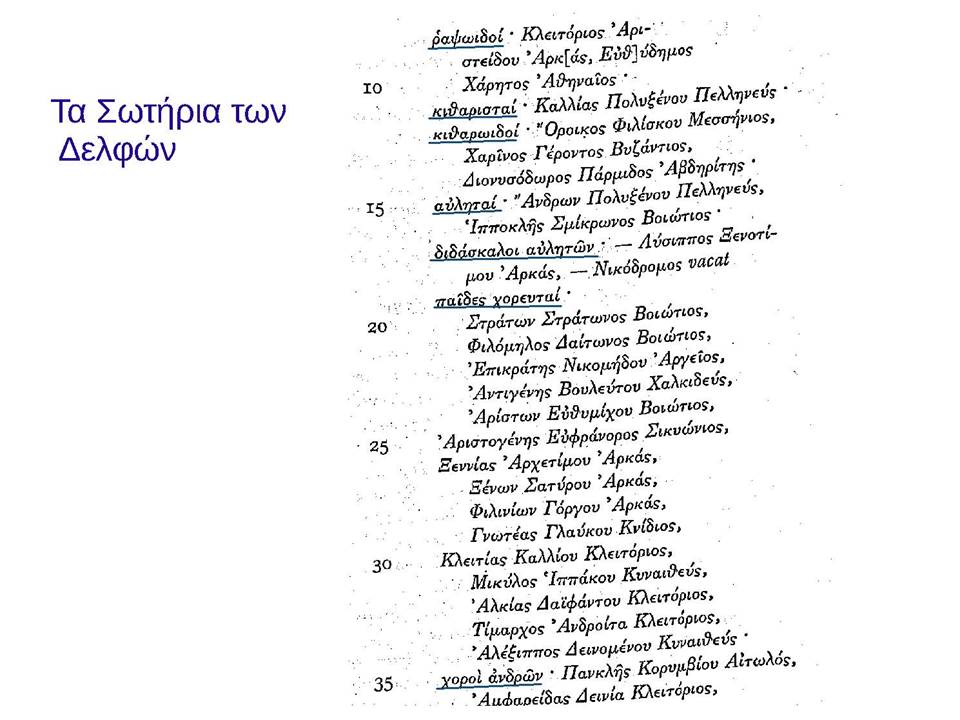 Τα Σωτήρια των
Δελφών
ῥαψωιδοί · Κλειτόριος Ἀρι-
στείδου Ἀρκ[άς, Εὐθ]ύδημος
10 Χάρητος Ἀθηναῖος ·
κιθαρισταί · Καλλίας Πολυξένου Πελληνεύς ·
κιθαρωιδοί · Ὄροικος Φιλίσκου Μεσσήνιος,
Χαρῖνος Γέροντος Βυζάντιος,
Διονυσόδωρος Πάρμιδος Ἀβδηρίτης ·
15 αὐληταί · Ἄνδρων Πολυξένου Πελληνεύς,
Ἱπποκλῆς Σμίκρωνος Βοιώτιος ·
διδάσκαλοι αὐλητῶν · — Λύσιππος Ξενοτί-
μου Ἀρκάς, — Νικόδρομος vacat
παῖδες χορευταί ·
20 Στράτων Στράτωνος Βοιώτιος,
Φιλόμηλος Δαίτωνος Βοιώτιος,
Ἐπικράτης Νικομήδου Ἀργεῖος,
Ἀντιγένης Βουλεύτου Χαλκιδεύς,
Ἀρίστων Εὐθυμίχου Βοιώτιος,
25 Ἀριστογένης Εὐφράνορος Σικυώνιος,
Ξεννίας Ἀρχετίμου Ἀρκάς,
Ξένων Σατύρου Ἀρκάς,
Φιλινίων Γόργου Ἀρκάς,
Γνωτέας Γλαύκου Κνίδιος,
30 Κλειτίας Καλλίου Κλειτόριος,
Μικύλος Ἱππάκου Κυναιθεύς,
Ἀλκίας Δαϊφάντου Κλειτόριος,
Τίμαρχος Ἀνδροίτα Κλειτόριος,
Ἀλέξιππος Δεινομένου Κυναιθεύς ·
35 χοροὶ ἀνδρῶν · Πανκλῆς Κορυμβίου Αἰτωλός,
Ἀμφαρείδας Δεινία Κλειτόριος,